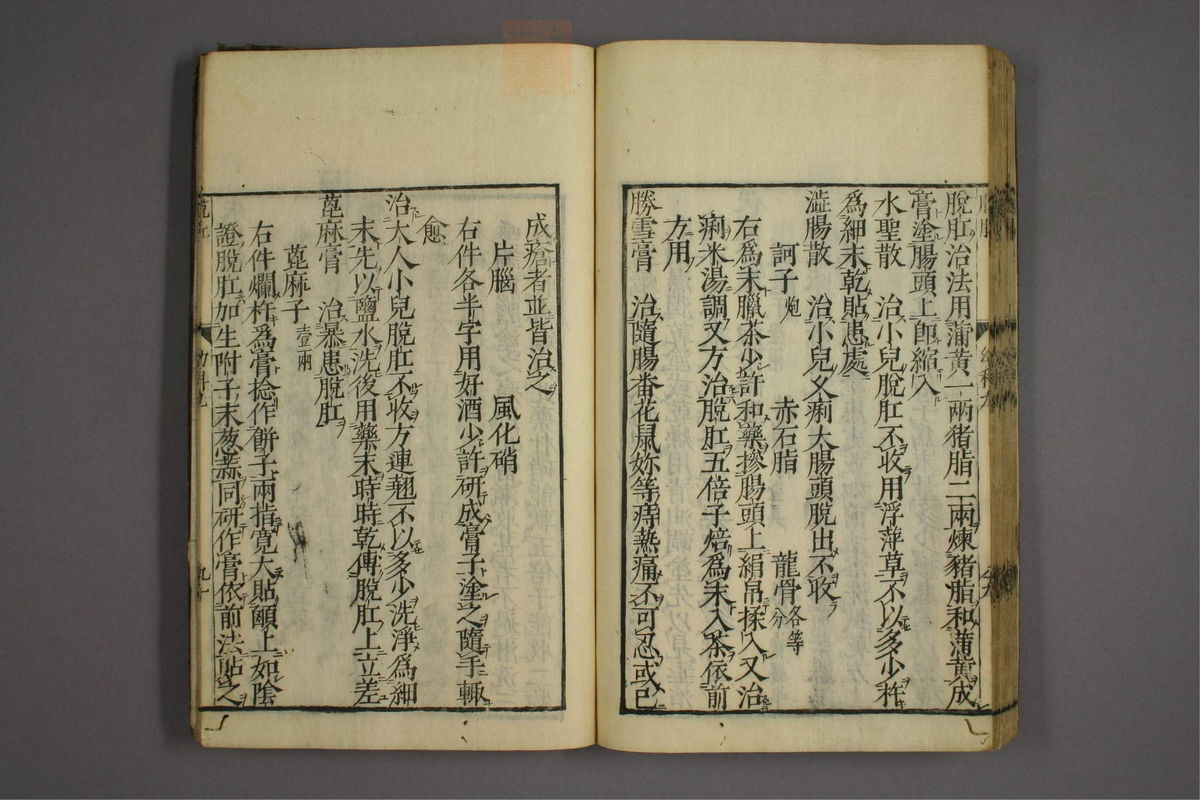 脫肛治法用蒲黄一兩猪脂二兩煉豬脂和蒲黄成
膏塗腸頭上即縮入
水聖散　治小兒脫肛不收用浮萍草不以多少杵
爲細末乾貼患處
澁腸散　治小兒久痢大腸頭脫出不收
訶子炮　赤石脂　龍骨各等分
右爲末臘茶少許和藥摻腸頭上絹帛揉入又治
痢米湯調又方治脫肛五倍子焙爲末入茶依前
方用
勝雪膏　治隨腸番花鼠妳等痔熱痛不可忍或已
成瘡者並皆治之
片腦　風化硝
右件各半字用好酒少許研成膏子塗之隨手輙
愈
治大人小兒脫肛不收方連翹不以多少洗淨爲細
末先以鹽水洗後用藥末時時乾傳脫肛上立差
萞麻膏　治暴患脫肛
蓖麻子壹兩
右件爛杵爲膏捻作餅子兩指寛大貼顖上如陰
證脫肛加生附子末葱蒜同研作膏依前法貼之
幼科九
九十